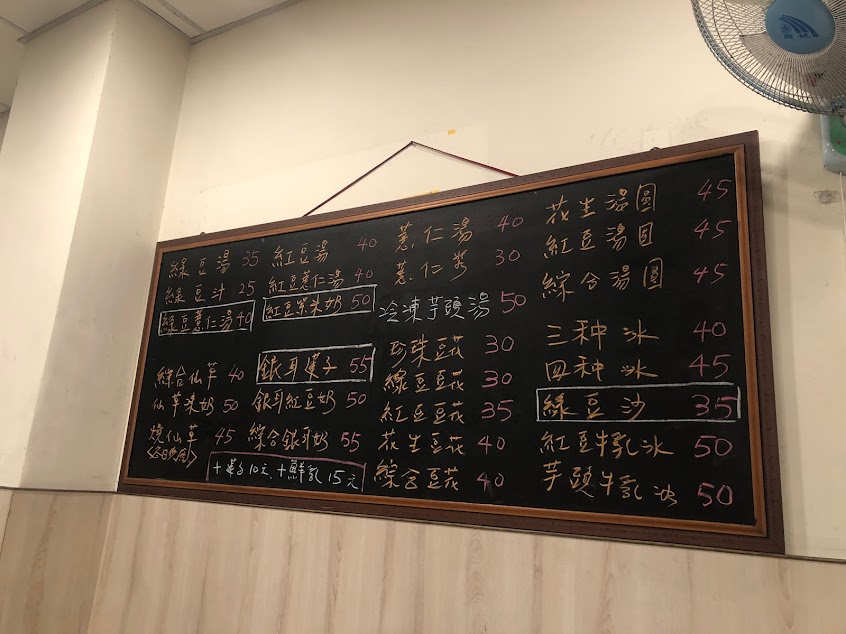 綠豆湯 35
綠豆汁 25
綠豆薏仁湯 40
綜合仙草 40
仙草柒奶 50
燒仙草 45
紅豆湯 40
紅豆薏仁湯 40
紅豆紫柒奶 50
銀耳蓮子 55
銀耳紅豆奶 50
綜合銀耳奶 55
+蓮子10元、+鮮乳15元
薏仁湯 40
薏仁漿 30
冷凍芋頭湯 50
珍珠豆花 30
綠豆豆花 30
紅豆豆花 35
花生豆花 40
綜合豆花 40
花生湯圓 45
紅豆湯圓 45
綜合湯圓 45
三种冰 40
四种冰 45
綠豆沙 35
紅豆牛乳冰 50
芋頭牛乳冰 50